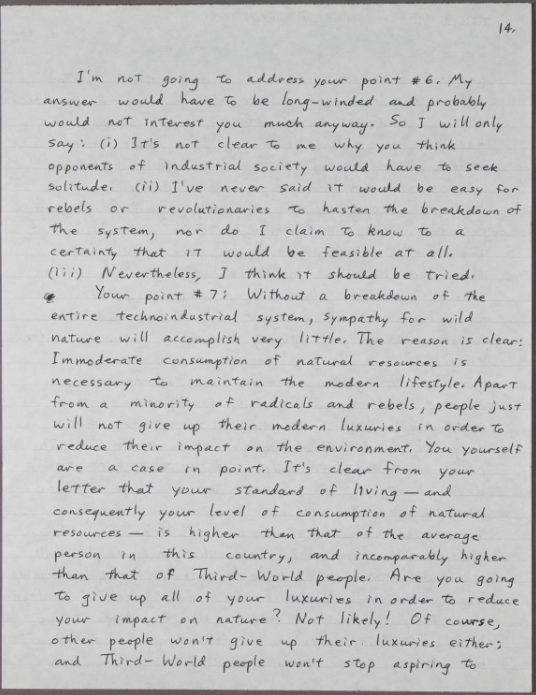 14.
I'm not going to address your point #6. My
answer would have to be long-winded and probably
would not interest you much anyway. So I will only
say: (i) It's not clear to me why you think
opponents of industrial society would have to seek
solitude. (ii) I've never said it would be easy for
rebels or revolutionaries to hasten the breakdown of
the system, nor do I claim to know to a
certainty that it would be feasible at all.
(iii) Nevertheless, I think it should be tried.
Your point #7: Without a breakdown of the
entire technoindustrial system, sympathy for wild
nature will accomplish very little. The reason is clear:
Immoderate consumption of natural resources is
necessary to maintain the modern lifestyle. Apart
from a minority of radicals and rebels, people just
will not give up their modern luxuries in order to
reduce their impact on the environment. You yourself
are a case in point. It's clear from your
letter that your standard of living — and
consequently your level of consumption of natural
resources — is higher than that of the average
person in this country, and incomparably higher
than that of Third-World people. Are you going
to give up all of your luxuries in order to reduce
your impact on nature? Not likely! Of course,
other people won't give up their luxuries either;
and Third-World people won't stop aspiring to